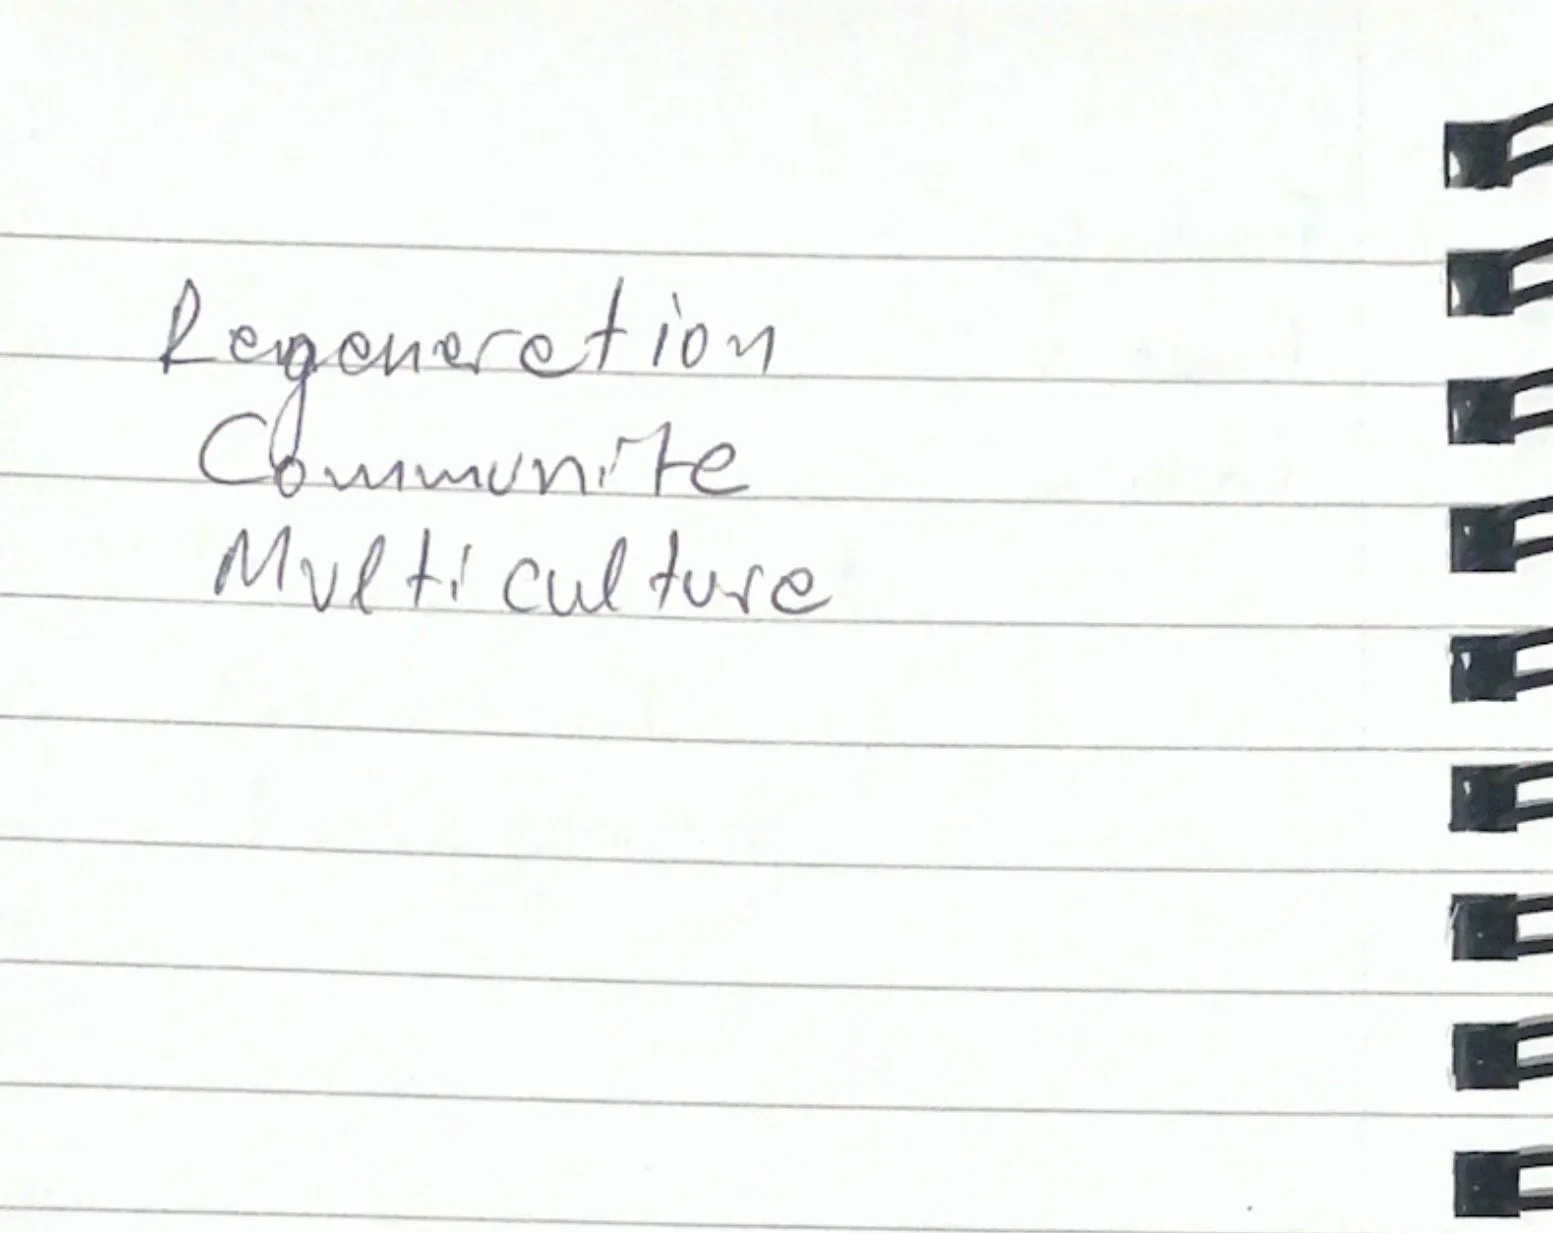 Regeneretion
Communite
Multiculture